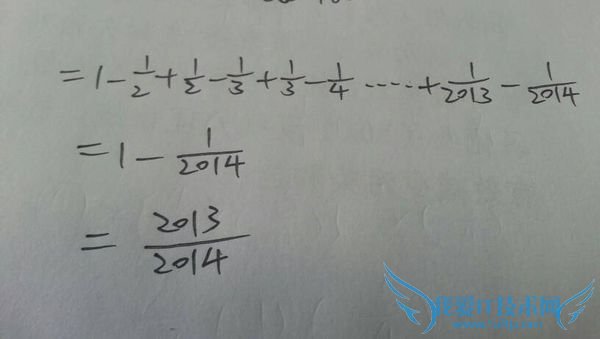 =1-1/2+1/2-1/3+1/3-1/4 ····+1/2013-1/2014
=1-1/2014
=2013/2014